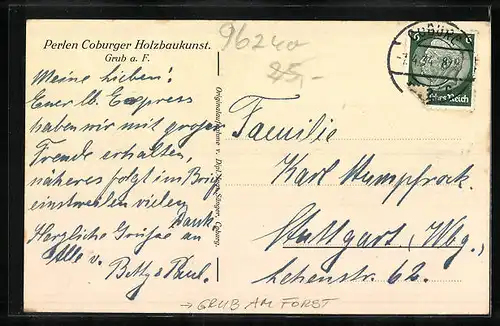 Perlen Coburger Holzbaukunst.
Grub a. F.
96240
25,-
COBURG
1.4.34. 8-9
Deutsches Reich
Meine Lieben!
Euer lb. Express
haben wir mit großer
Freude erhalten,
näheres folgt im Brief
einstweilen vielen
Dank.
Herzliche Grüße an
Alle v.
Betty & Paul.
Originalaufnahme v. Dipl.-Ing. Sänger, Coburg.
Familie
Karl Stumpfrock.
Stuttgart, Wbg.
Lehenstr. 62.
→ GRUB AM FORST